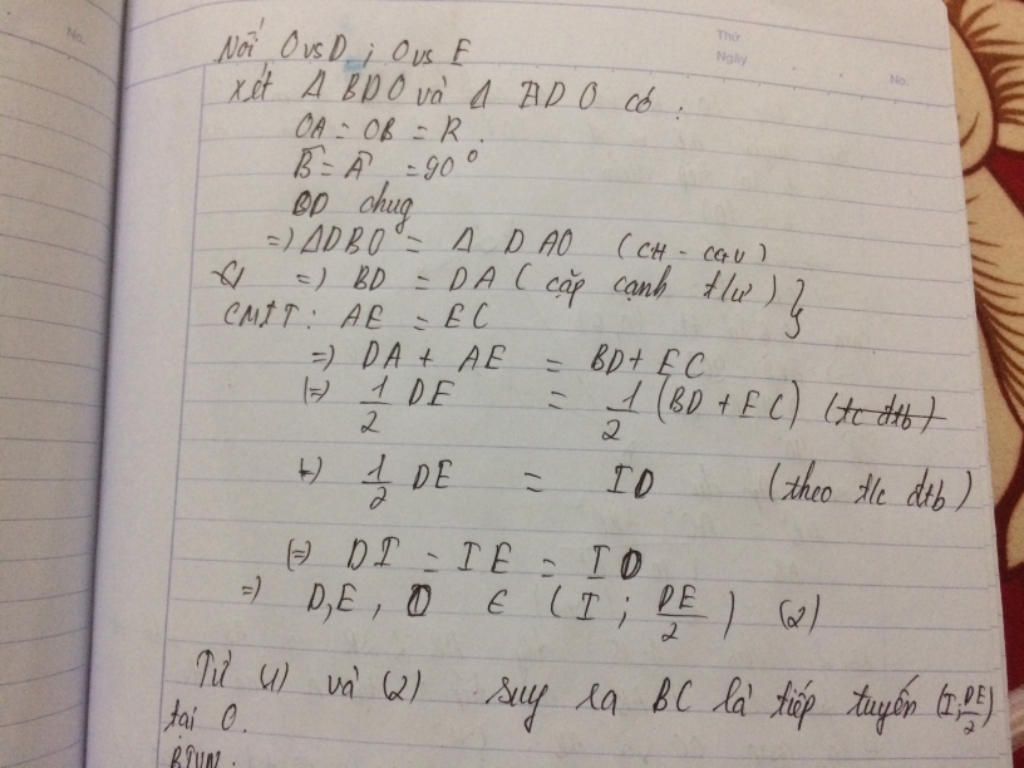 No.
Thứ
Ngày
No.
Nối O vs D ; O vs E
Xét Δ BDO và Δ ADO có :
OA = OB = R .
B̂ = Â = 90°
OD chug
=> ΔDBO = Δ DAO (CH - CGV)
=> BD = DA ( cặp cạnh t/ư ) }
CMTT : AE = EC
=> DA + AE = BD + EC
(=) 1/2 DE = 1/2 (BD + EC) (tc đtb)
1/2 DE = IO (theo t/c đtb)
(=) DI = IE = IO
=) D,E, O ∈ ( I ; DE/2 ) (2)
Từ (1) và (2) suy ra BC là tiếp tuyến (I; DE/2)
tại O.
BTVN :